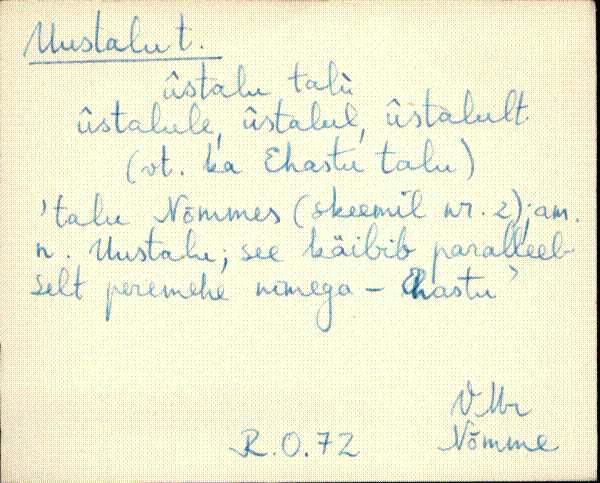 Uustalu t.
ûstalu talù
ûstalule, ûstalul, ûstalult
(vt. ka Ehastu talu)
'talu Nõmmes (skeemil nr. 2); am.
n. Uustalu; see käibib paralleel-
selt peremehe nimega - Ehastu'
VMr
R.O.72 Nõmme